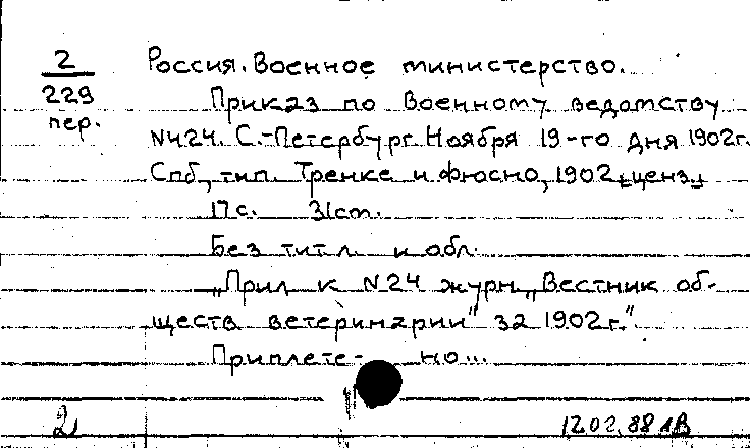 2
229
пер.
Россия. Военное министерство.
Приказ по военному ведомству
N424. С.-Петербург. Ноября 19-го дня 1902г.
Спб, тип. Тренке и Фюсно, 1902 [ценз.]
17с. 31ст.
Без тит. л. и обл.
„Прил. к N24 журн. „Вестник об-
ществ ветеринарии" за 1902г."
Приплете- но...
2
12.02.88 ЛВ